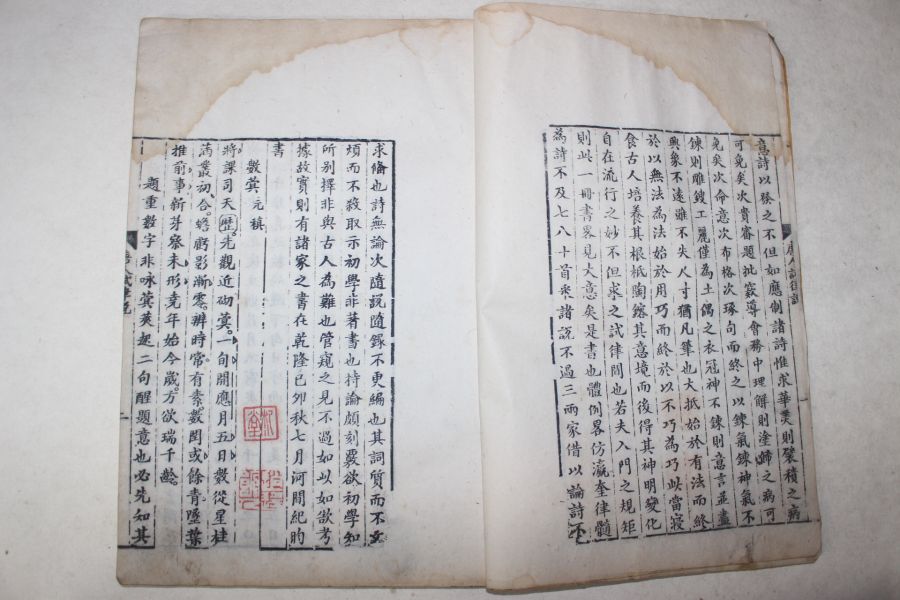 意詩以發之不但如應制諸詩惟求華美則襞積之病
可免矣次貴審題批窾導會務中理解則塗飾之病可
免矣次命意次布格次琢句而終之以鍊氣鍊神氣不
鍊則雕鎪工麗僅為土偶之衣冠神不鍊則意言並盡
興象不遠雖不失尺寸猶凡筆也大抵始於有法而終
於以無法為法始於用巧而終於以不巧為巧此當寢
食古人培養其根柢陶鎔其意境而後得其神明變化
自在流行之妙不但求之試律間也若夫入門之規矩
則此一冊書畧見大意矣是書也體例畧仿瀛奎律髓
為詩不及七八十首采諸說不過三兩家借以論詩不
求備也詩無論次隨說隨錄不更編也其詞質而不文
煩而不殺取示初學非著書也持論頗刻覈欲初學知
所別擇非與古人為難也管窺之見不過如以如欲考
據故實則有諸家之書在乾隆己卯秋七月河間紀昀
書
數蓂 元稹
將課司天歷先觀近砌蓂一旬開應月五日數從星桂
滿叢初合蟾虧影漸零辨時常有素數閏或餘青墜葉
推前事新芽察未形堯年始今歲方欲瑞千齡
題重數字非咏蓂莢起二句醒題意也必先知其